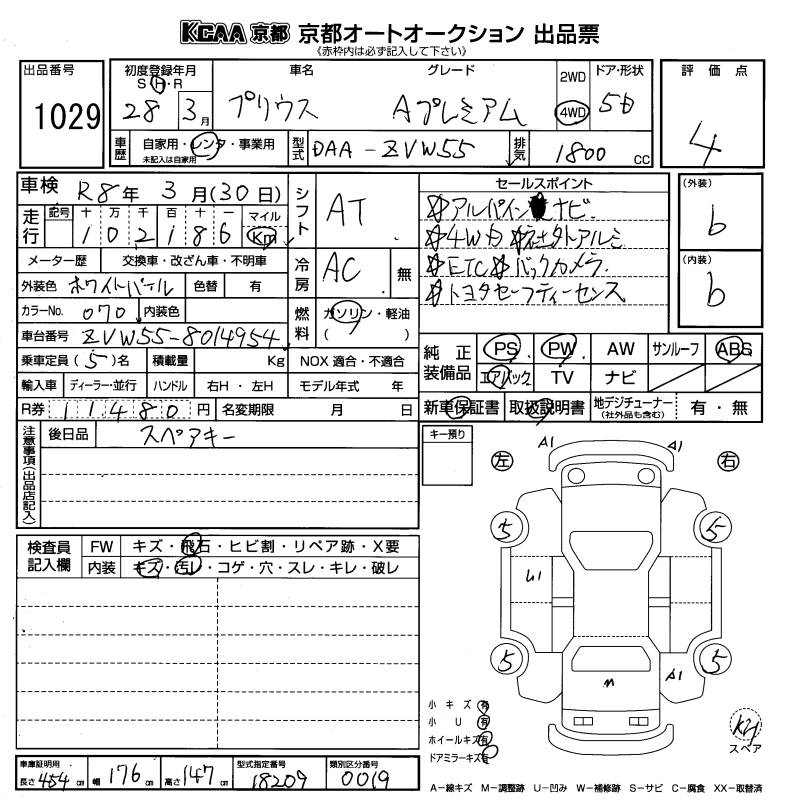 KCAA 京都 京都オートオークション 出品票
《赤枠内は必ず記入して下さい》
出品番号 1029
初度登録年月 S・H・R 28 3月
車名 プリウス
グレード Aプレミアム
2WD 4WD
ドア・形状 5D
評価点 4
車歴 自家用・レンタ・事業用 未記入は自家用
型式 DAA-ZVW55
排気 1800 CC
車検 R8年 3月(30日)
シフト AT
セールスポイント
☆アルパイン ナビ
☆4WD ☆社外アルミ
☆ETC☆バックカメラ
☆トヨタセーフティーセンス
(外装) b
(内装) b
走行 記号 十 万 千 百 十 一 マイル Km
102186
メーター歴 交換車・改ざん車・不明車
冷房 AC 無
外装色 ホワイトパール 色替 有
カラーNo. 070 内装色
燃料 ガソリン・軽油 ( )
車台番号 ZVW55-8014954
乗車定員(5)名 積載量 Kg NOX 適合・不適合
輸入車 ディーラー・並行 ハンドル 右H・左H モデル年式 年
R券 11480円 名変期限 月 日
純正装備品 PS PW AW サンルーフ ABS
エアバック TV ナビ
新車保証書 取扱説明書 地デジチューナー (社外品も含む) 有・無
注意事項(出品店記入) 後日品 スペアキー
キー預り
左 右
A1 A1
5 5
U1
5 5
A1
M
検査員記入欄 FW キズ・飛石・ヒビ割・リペア跡・X要
内装 キズ・汚レ・コゲ・穴・スレ・キレ・破レ
小キズ 有
小U 有
ホイールキズ 有
ドアミラーキズ 有
スペア
車庫証明用 長さ454cm 幅176cm 高さ147cm 型式指定番号 18209 類別区分番号 0019
A−線キズ M−調整跡 U−凹み W−補修跡 S−サビ C−腐食 XX−取替済